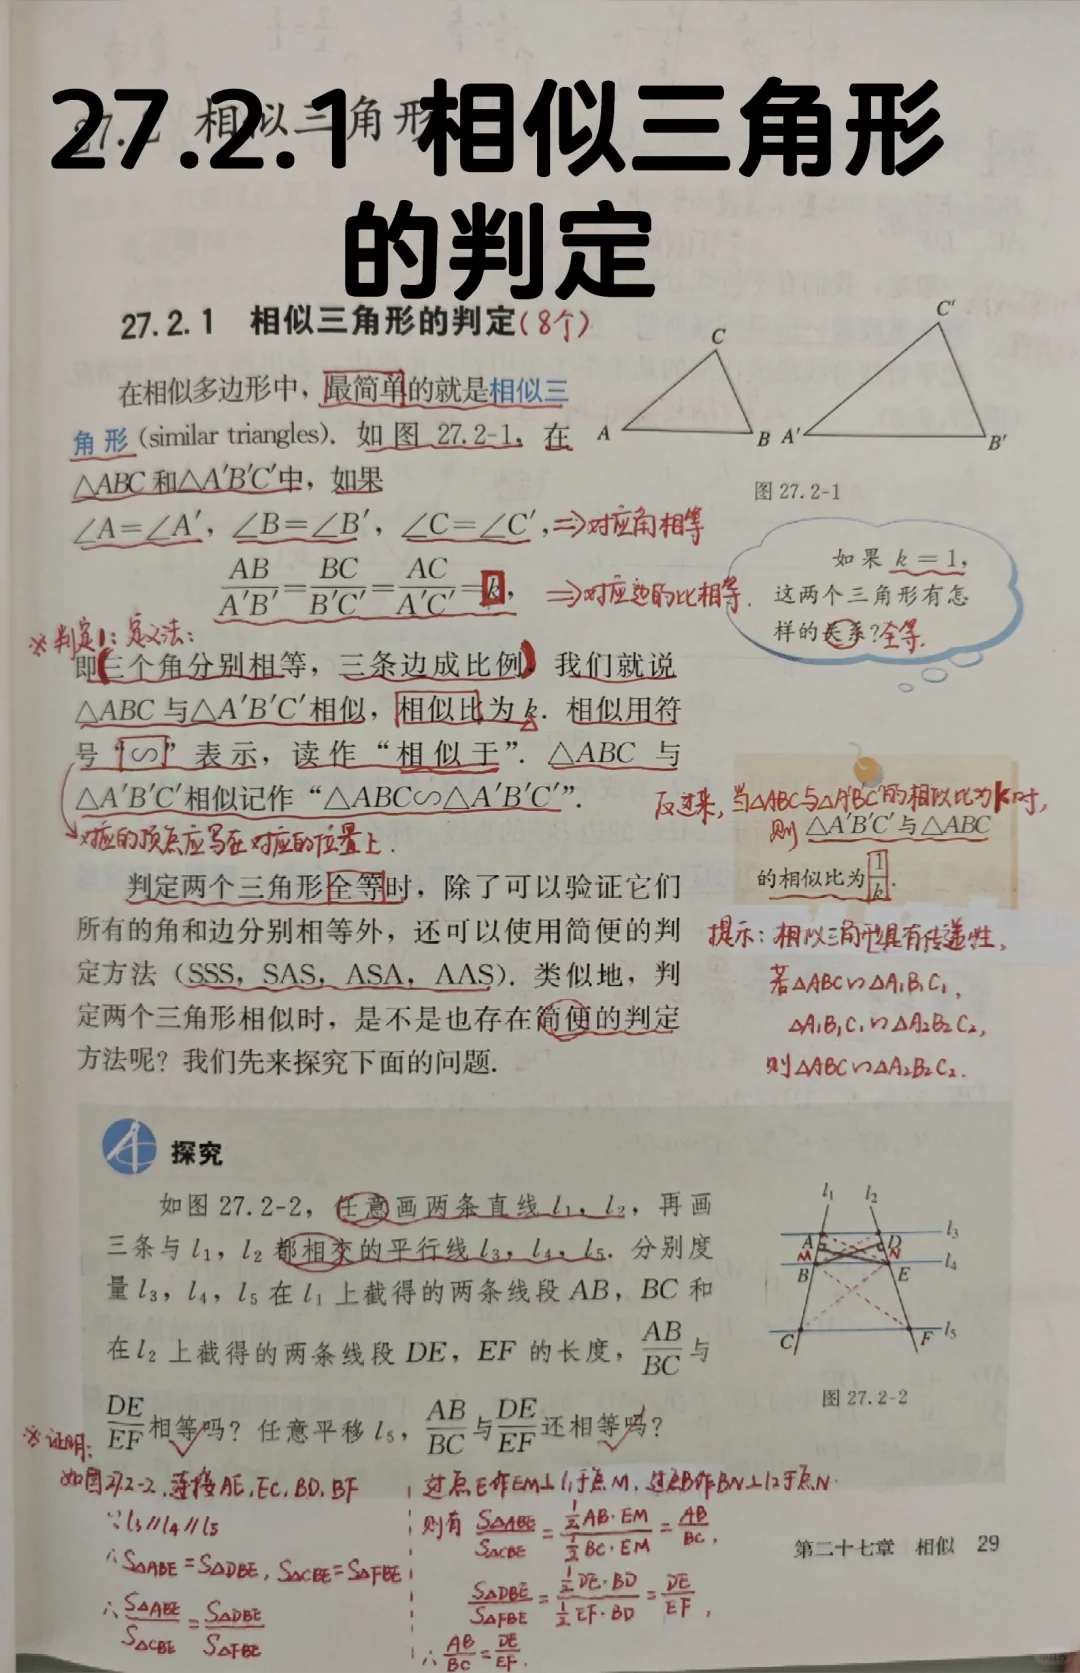 27.2.1 相似三角形
的判定
27.2 相似三角形
27.2.1 相似三角形的判定(8个)
在相似多边形中，最简单的就是相似三
角形(similar triangles). 如图 27.2-1，在
△ABC 和△A′B′C′中，如果
∠A=∠A′，∠B=∠B′，∠C=∠C′，⇒对应角相等
AB/A′B′=BC/B′C′=AC/A′C′=k，⇒对应边的比相等.
C
A
B
C′
A′
B′
图 27.2-1
如果 k=1，
这两个三角形有怎
样的关系？全等.
※判定1：定义法：
即(三个角分别相等，三条边成比例)，我们就说
△ABC 与△A′B′C′相似，相似比为 k. 相似用符
号“∽”表示，读作“相似于”. △ABC 与
△A′B′C′相似记作“△ABC∽△A′B′C′”.
对应的顶点应写在对应的位置上.
反过来，当△ABC与△A′B′C′的相似比为k时，
则 △A′B′C′与△ABC
的相似比为1/k.
判定两个三角形全等时，除了可以验证它们
所有的角和边分别相等外，还可以使用简便的判
定方法（SSS，SAS，ASA，AAS）. 类似地，判
定两个三角形相似时，是不是也存在简便的判定
方法呢？我们先来探究下面的问题.
提示：相似三角形具有传递性，
若△ABC∽△A₁B₁C₁，
△A₁B₁C₁∽△A₂B₂C₂，
则△ABC∽△A₂B₂C₂.
探究
如图 27.2-2，任意画两条直线 l₁，l₂，再画
三条与 l₁，l₂ 都相交的平行线 l₃，l₄，l₅. 分别度
量 l₃，l₄，l₅ 在 l₁ 上截得的两条线段 AB，BC 和
在 l₂ 上截得的两条线段 DE，EF 的长度，AB/BC 与
DE/EF 相等吗？任意平移 l₅，AB/BC 与 DE/EF 还相等吗？
l₁ l₂
A D l₃
M N
B E l₄
C F l₅
图 27.2-2
※证明：
如图27.2-2，连接AE，EC，BD，BF
∵l₃∥l₄∥l₅
∴S△ABE=S△DBE，S△CBE=S△FBE
∴S△ABE/S△CBE=S△DBE/S△FBE
过点E作EM⊥l₁于点M，过点B作BN⊥l₂于点N.
则有 S△ABE/S△CBE=(1/2AB·EM)/(1/2BC·EM)=AB/BC，
S△DBE/S△FBE=(1/2DE·BD)/(1/2EF·BD)=DE/EF，
∴AB/BC=DE/EF.
第二十七章 相似 29